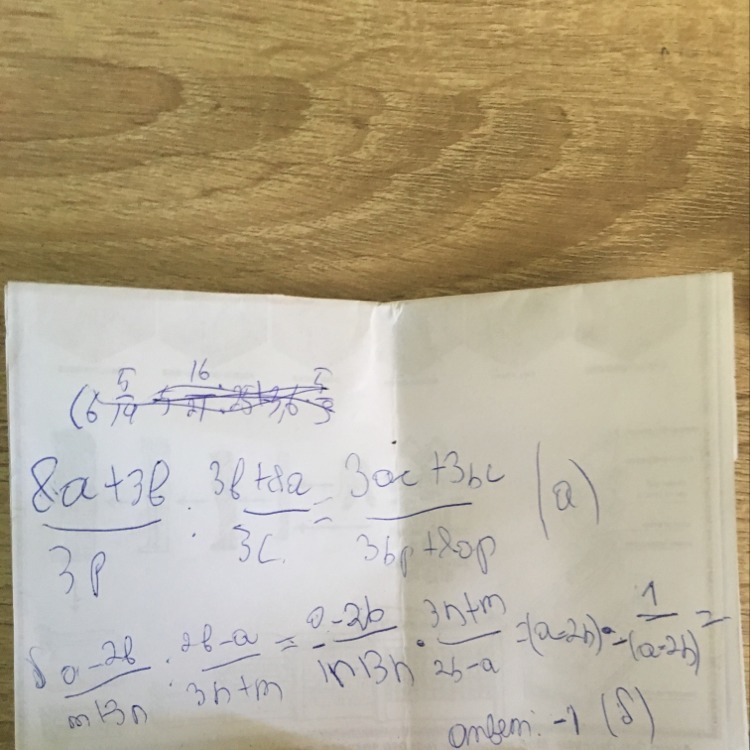 (6 5/14
16
8a+3b/3p : 3b+8a/3c = 3ac+3bc/3bp+8ap (a)
б a-2b/m+3n : 2b-a/3n+m = a-2b/m+3n · 3n+m/2b-a = (a-2b) · 1/-(a-2b) =
ответ: -1 (б)